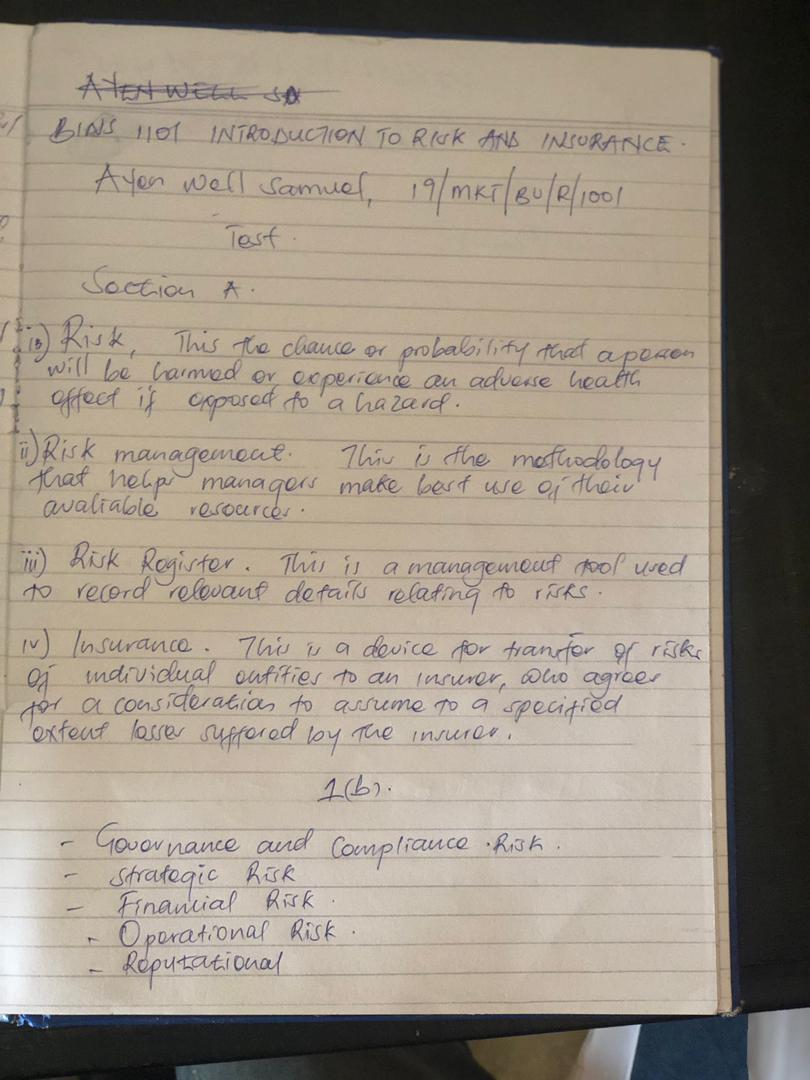 AYEN WELL SA
BINS 1101 INTRODUCTION TO RISK AND INSURANCE.
Ayen Well Samuel, 19/MKT/BU/R/1001
Test.
Section A.
is) Risk, This the chance or probability that a person
will be harmed or experience an adverse health
effect if exposed to a hazard.
ii) Risk management. This is the methodology
that helps managers make best use of their
avaliable resources.
iii) Risk Register. This is a management tool used
to record relevant details relating to risks.
iv) Insurance. This is a device for transfer of risks
of individual entities to an insurer, who agrees
for a consideration to assume to a specified
extent losses suffered by the insurer.
1(b).
- Governance and Compliance Risk.
- Strategic Risk
- Financial Risk.
- Operational Risk.
- Reputational